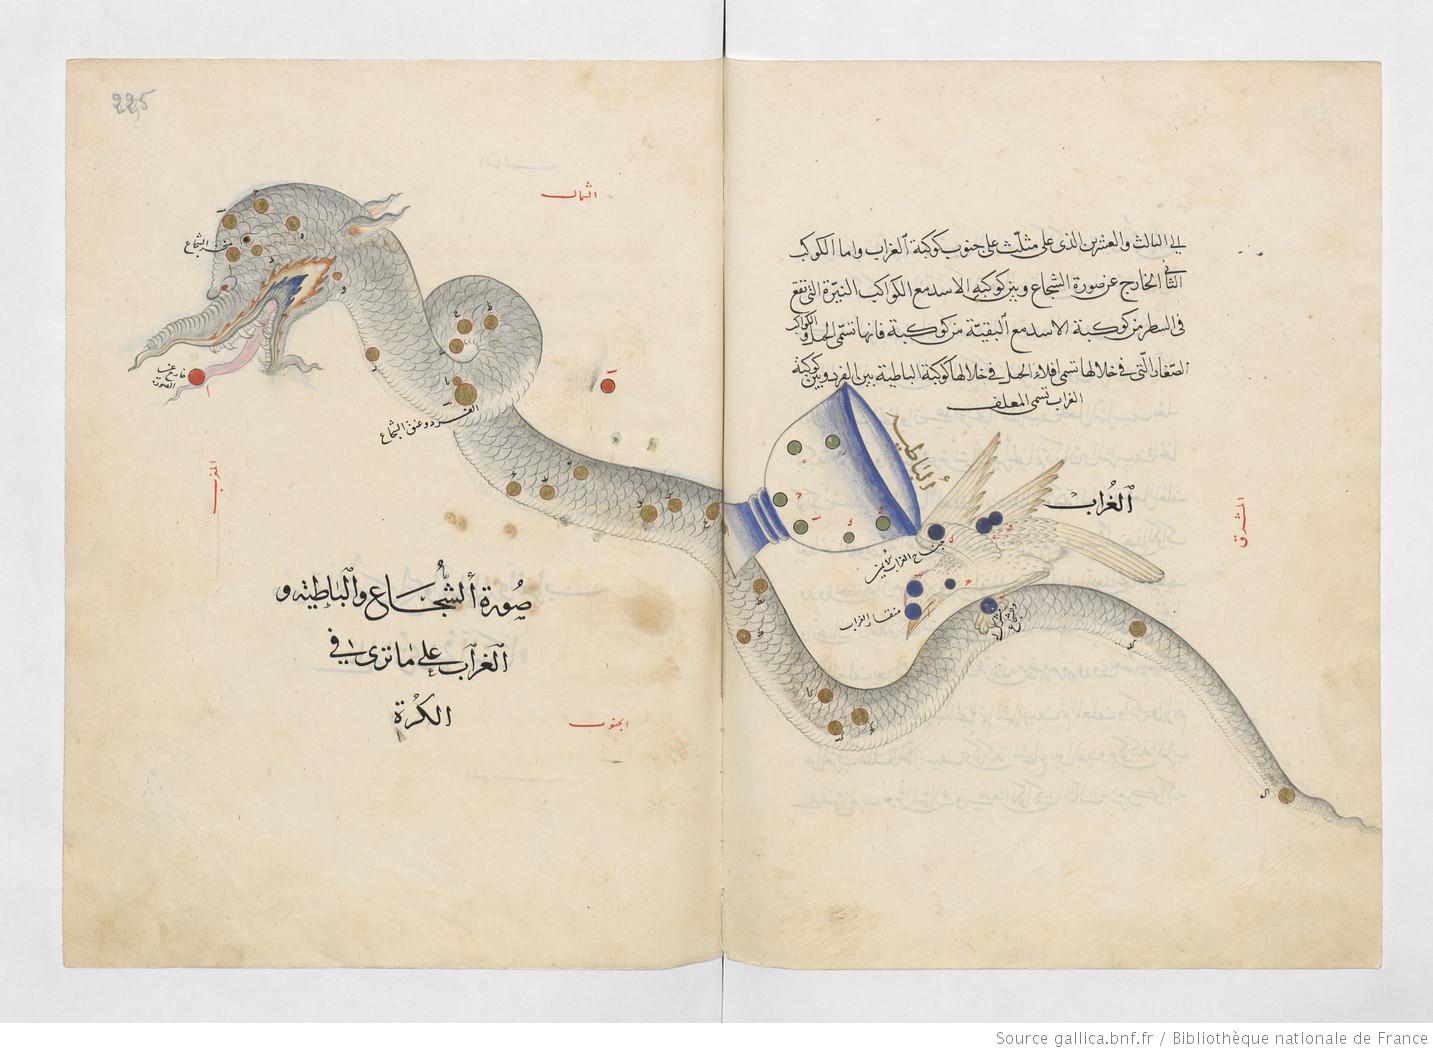 الى الثالث والعشرين الذى على مثلث على جنوب كوكبة الغراب واما الكوكب
الثانى الخارج عن صورة الشجاع وبين كوكبه الاسد مع الكواكب النيرة التى تقع
فى السطر من كوكبة الاسد مع البقية من كوكبة فانها تسمى الخيل والكواكب
الصغار التى فى خلالها تسمى افلاء الخيل فى خلالها كوكبة الباطية بين الفرد وبين كوكبة
الغراب تسمى المعلف
الباطية
الغراب
المشرق
جناح الغراب الايمن
منقار الغراب
225
الشمال
منخر الشجاع
خارج عن
الصورة
الفرد وعنق الشجاع
المغرب
صورة الشجاع والباطية و
الغراب على ما ترى فى
الكرة
الجنوب
Source gallica.bnf.fr / Bibliothèque nationale de France